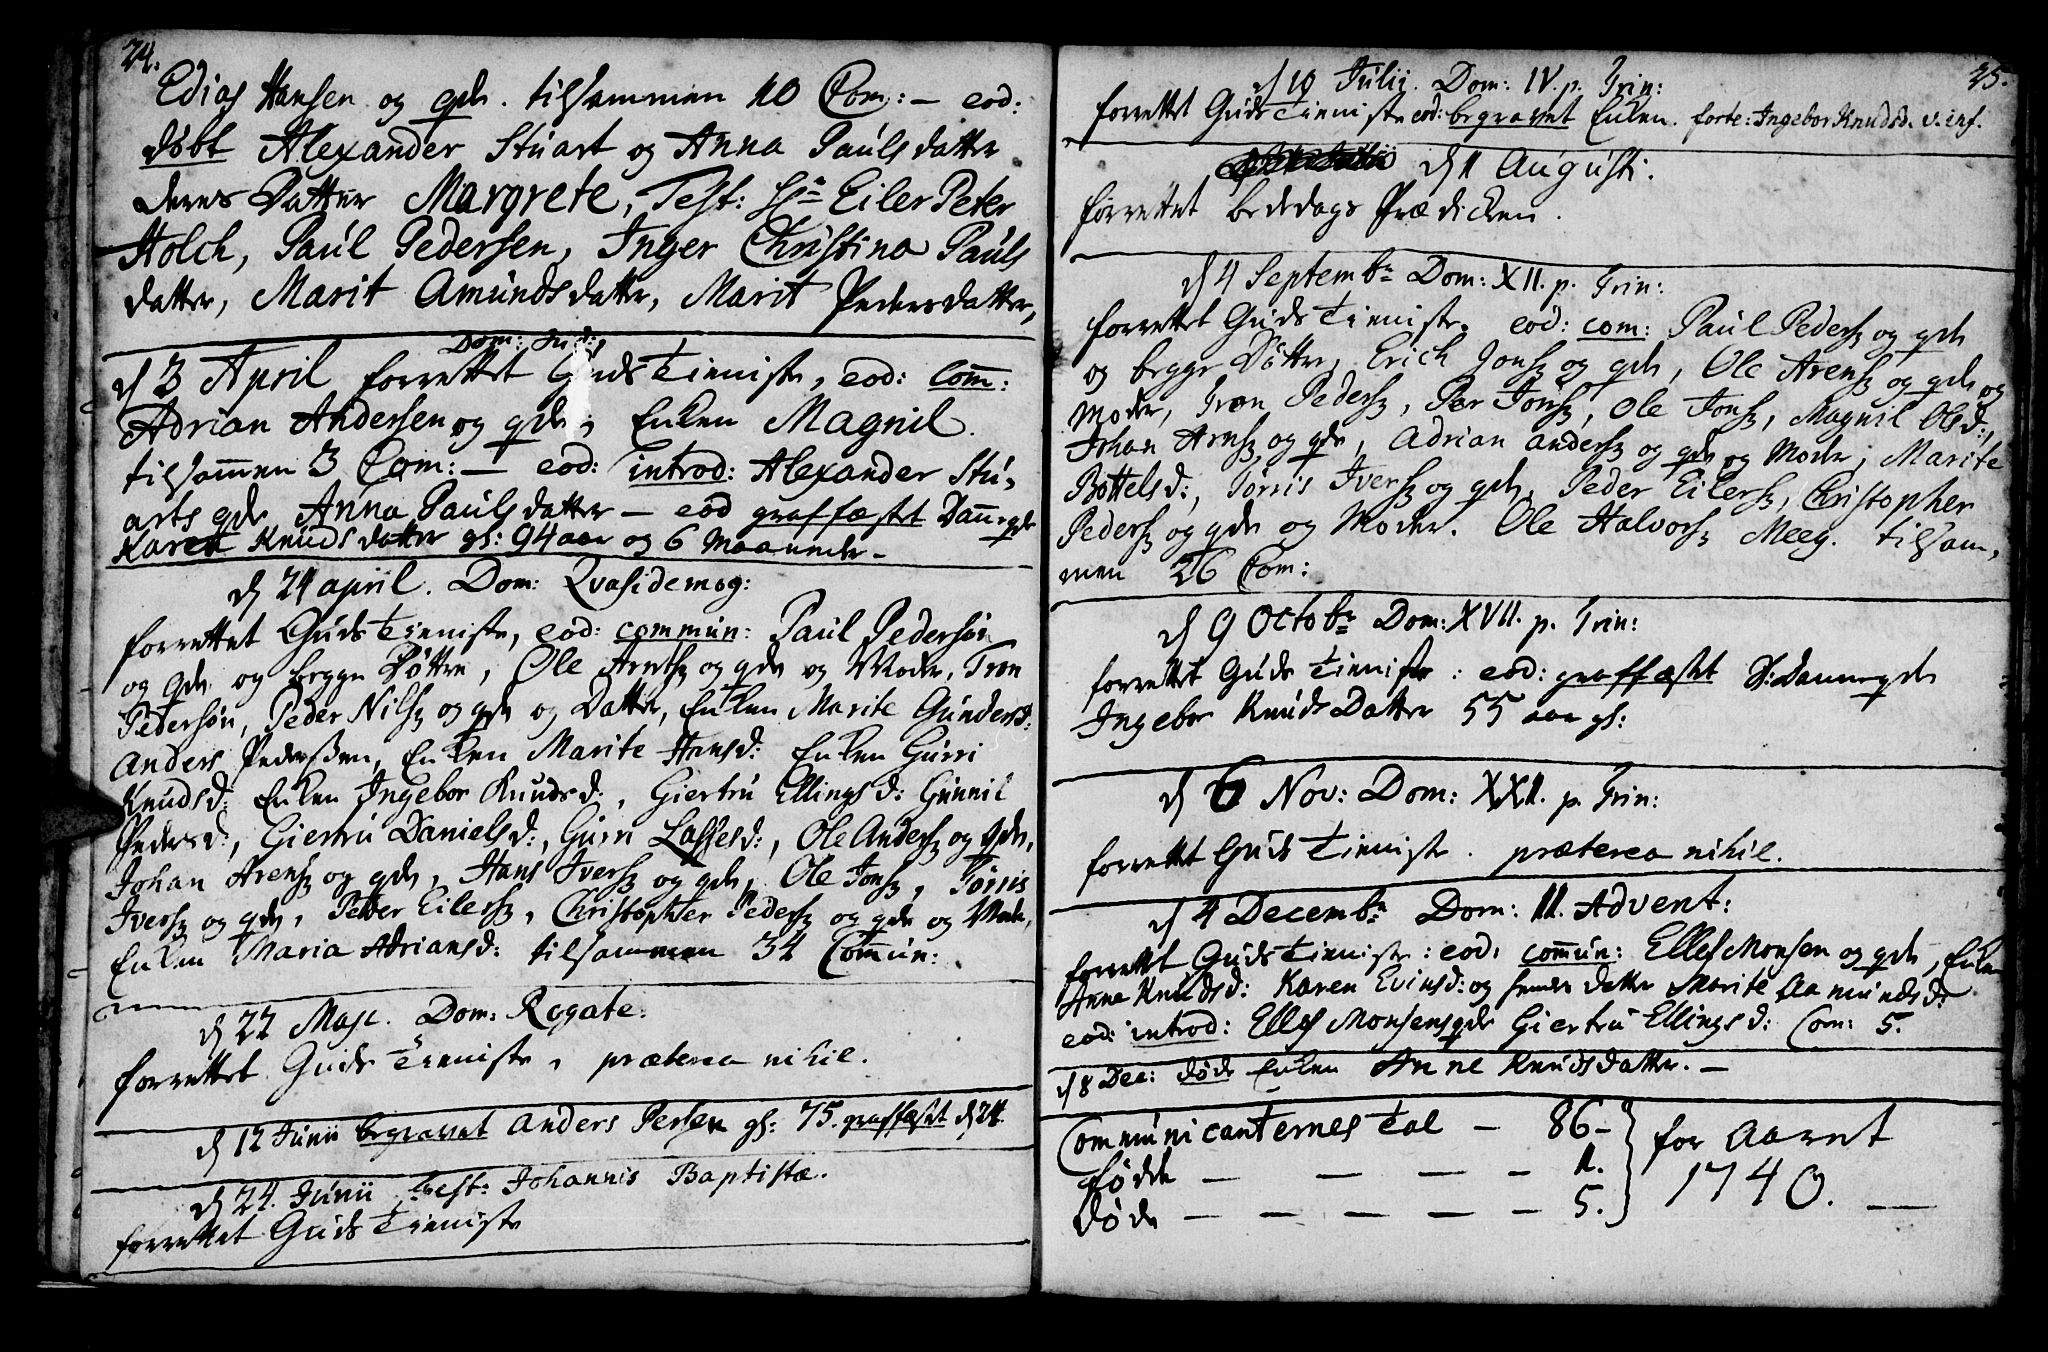 24.
Edias Hansen og qvde. tilsammen 10 Com: — eod:
døbt Alexander Stuart og Anna Paulsdatter
deres Datter Margrete, Test: Hr Eiler Peter
Holch, Paul Pedersen, Inger Christina Pauls
datter, Marit Amundsdatter, Marit Pedersdatter,
Dom: Jud:
d 3 April forrettet Guds Tieniste, eod: Com:
Adrian Andersen og qvde, Enken Magnil
tilsammen 3 Com: — eod: introd: Alexander Stu,
arts qvde Anna Paulsdatter — eod graffæstet Danneqvde
Karen Knudsdatter gl: 94 aar og 6 Maaneder.
d 24 april. Dom: Qvasidemog:
forrettet Guds Tieniste, eod: commun: Paul Pedersøn
og qvde og begge Døttre, Ole Arntß og qvde og Moder, Tron
Pedersøn, Peder Nilsß og qvde og Datter, Enken Marite Gundersd:
Anders Pederßen, Enken Marite Hansd: Enken Gurri
Knudsd: Enken Ingebor Knudsd:, Giertru Ellingsd: Gunnil
Pedersd:, Giertru Danielsd:, Gurri Lassesd:, Ole Andersß og qvde,
Johan Arensß og qvde, Hans Iversß og qvde, Ole Jonsß, Tørris
Iversß og qvde, Peder Eilersß, Christopher Pedersß og qvde og Moder,
Enken Maria Adriansd: tilsammen 34 Commun:
d 22 Maji. Dom: Rogate:
forrettet Guds Tieniste, præterea nihil.
d 12 Junii begravet Anders Persen gl: 75. graffæstet d 24.
d 24. Junii, Fest: Johannis Baptistæ.
forrettet Guds Tieniste
25.
d 10 Julii. Dom: IV. p. Trin:
forrettet Guds Tieniste eod: begravet Enken. forte: Ingebor Knudsd. v. inf.
d 11 Augusti.
forrettet bededags Prædicken.
d 4 Septembr Dom: XII. p. Trin:
forrettet Guds Tieniste. eod: com: Paul Pedersß og qvde
og begge Døttre, Erich Jonsß og qvde, Ole Arensß og qvde og
Moder, Tron Pedersß, Per Jonsß, Ole Jonsß, Magnil Olsd:,
Johan Arnsß og qvde, Adrian andersß og qvde og Moder, Marite
Bottelsd:, Tørris Iversß og qvde, Peder Eilersß, Christopher
Pedersß og qvde og Moder. Ole Halvorsß Meeg. tilsam,
men 26 Com:
d 9 Octobr Dom: XVII. p. Trin:
forrettet Guds Tieniste: eod: graffæstet S: Danneqvde
Ingebor Knuds Datter 55 aar gl:
d 6 Nov: Dom: XXII. p. Trin:
forrettet Guds Tieniste. præterea nihil.
d 4 Decembr Dom: II. Advent:
forrettet Guds Tieniste: eod: commun: Ellef Monsen og qvde, Enken
Anne Knudsd: Karen Evinsd: og hendes datter Marite Aamundsd:
eod: introd: Ellef Monsens qvde Giertru Ellingsd: Com: 5.
d 8 Dec: døde Enken Anne Knudsdatter. —
Communicanternes Tal — 86 —
fødde — — — — 1. for Aaret
døde — — — — — 5. 1740. —